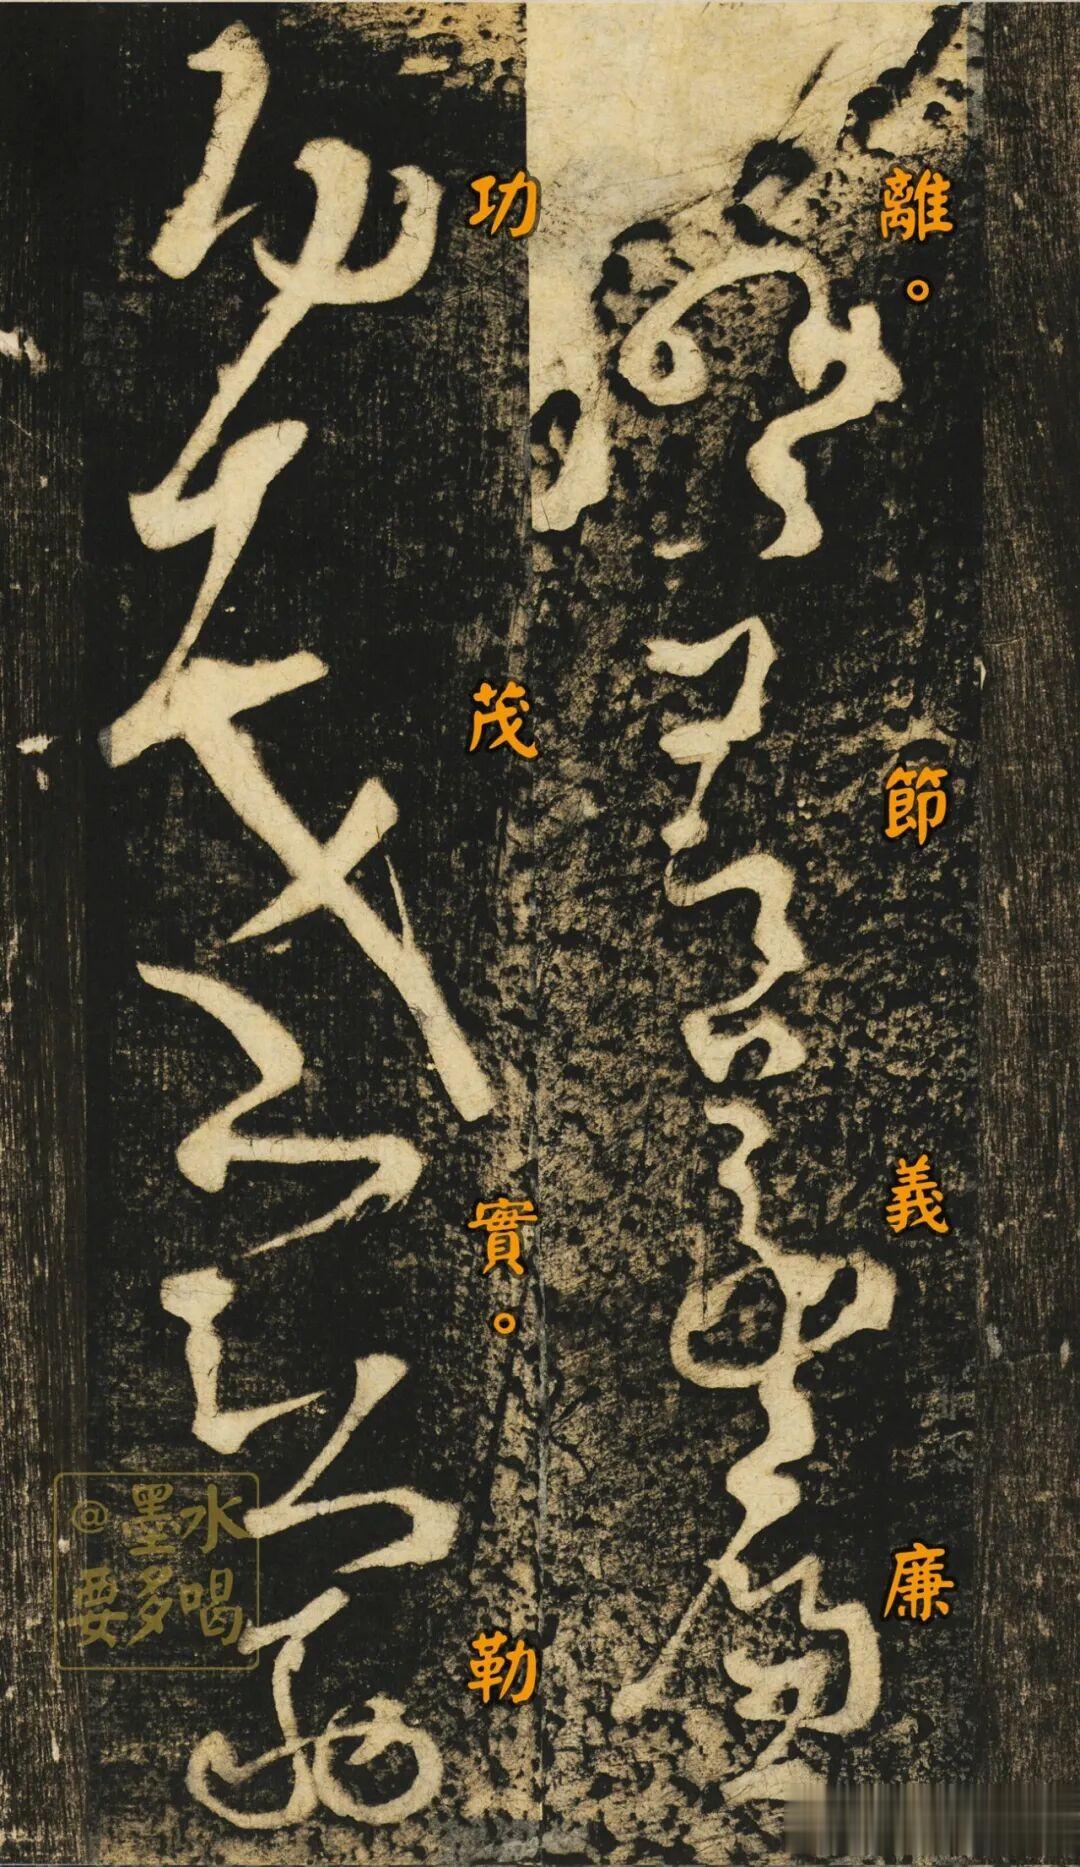 離。節義廉
功茂實。勒
@墨水
要多喝